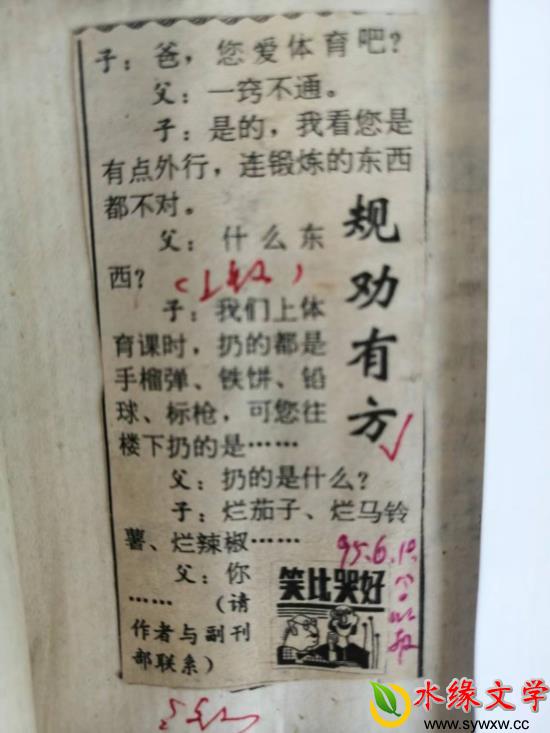 子：爸，您爱体育吧？
父：一窍不通。
子：是的，我看您是
有点外行，连锻炼的东西
都不对。
父：什么东
西？
子：我们上体
育课时，扔的都是
手榴弹、铁饼、铅
球、标枪，可您往
楼下扔的是……
父：扔的是什么？
子：烂茄子、烂马铃
薯、烂辣椒……
父：你
……（请
作者与副刊
部联系）
规劝有方
笑比哭好
95.6.10.
水缘文学
www.sywxw.cc